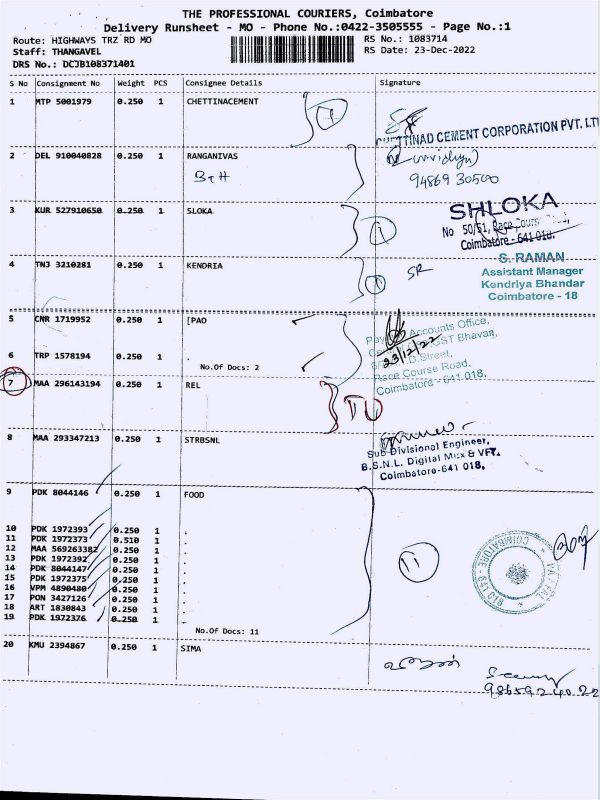 THE PROFESSIONAL COURIERS, Coimbatore
Delivery Runsheet - MO - Phone No.:0422-3505555 - Page No.:1
Route: HIGHWAYS TRZ RD MO
RS No.: 1083714
Staff: THANGAVEL
RS Date: 23-Dec-2022
DRS No.: DCJB108371401
S No Consignment No Weight PCS Consignee Details Signature
1 MTP 5001979 0.250 1 CHETTINACEMENT
CHETTINAD CEMENT CORPORATION PVT. LT
2 DEL 910040828 0.250 1 RANGANIVAS
B&H
94869 30500
3 KUR 527910650 0.250 1 SLOKA
SHLOKA
No 50/51, Race Course
Coimbatore - 641 018.
1
4 TNJ 3210281 0.250 1 KENDRIA
SR
S. RAMAN
Assistant Manager
Kendriya Bhandar
Coimbatore - 18
5 CNR 1719952 0.250 1 [PAO
Accounts Office,
GST Bhavan,
6 TRP 1578194 0.250 1 .
23/12/22
D.Street,
No.Of Docs: 2
Race Course Road,
Coimbatore - 641 018.
7 MAA 296143194 0.250 1 REL
8 MAA 293347213 0.250 1 STRBSNL
Sub Divisional Engineer,
B.S.N.L. Digital
Coimbatore-641 018,
9 PDK 8044146 0.250 1 FOOD
10 PDK 1972393 0.250 1 .
11 PDK 1972373 0.510 1 .
12 MAA 569263382 0.250 1 .
13 PDK 1972392 0.250 1 .
14 PDK 8044147 0.250 1 .
15 PDK 1972375 0.250 1 .
16 VPM 4890480 0.250 1 .
17 PON 3427126 0.250 1 .
18 ART 1830843 0.250 1 .
19 PDK 1972376 0.250 1 .
11
COIMBATORE
No.Of Docs: 11
20 KMU 2394867 0.250 1 SIMA